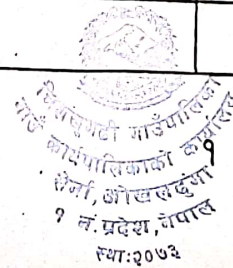 चिसंखुगढी गाउँपालिका
गाउँ कार्यपालिकाको कार्यालय
१
सेर्ना, ओखलढुंगा
१ नं. प्रदेश, नेपाल
स्था:२०७३